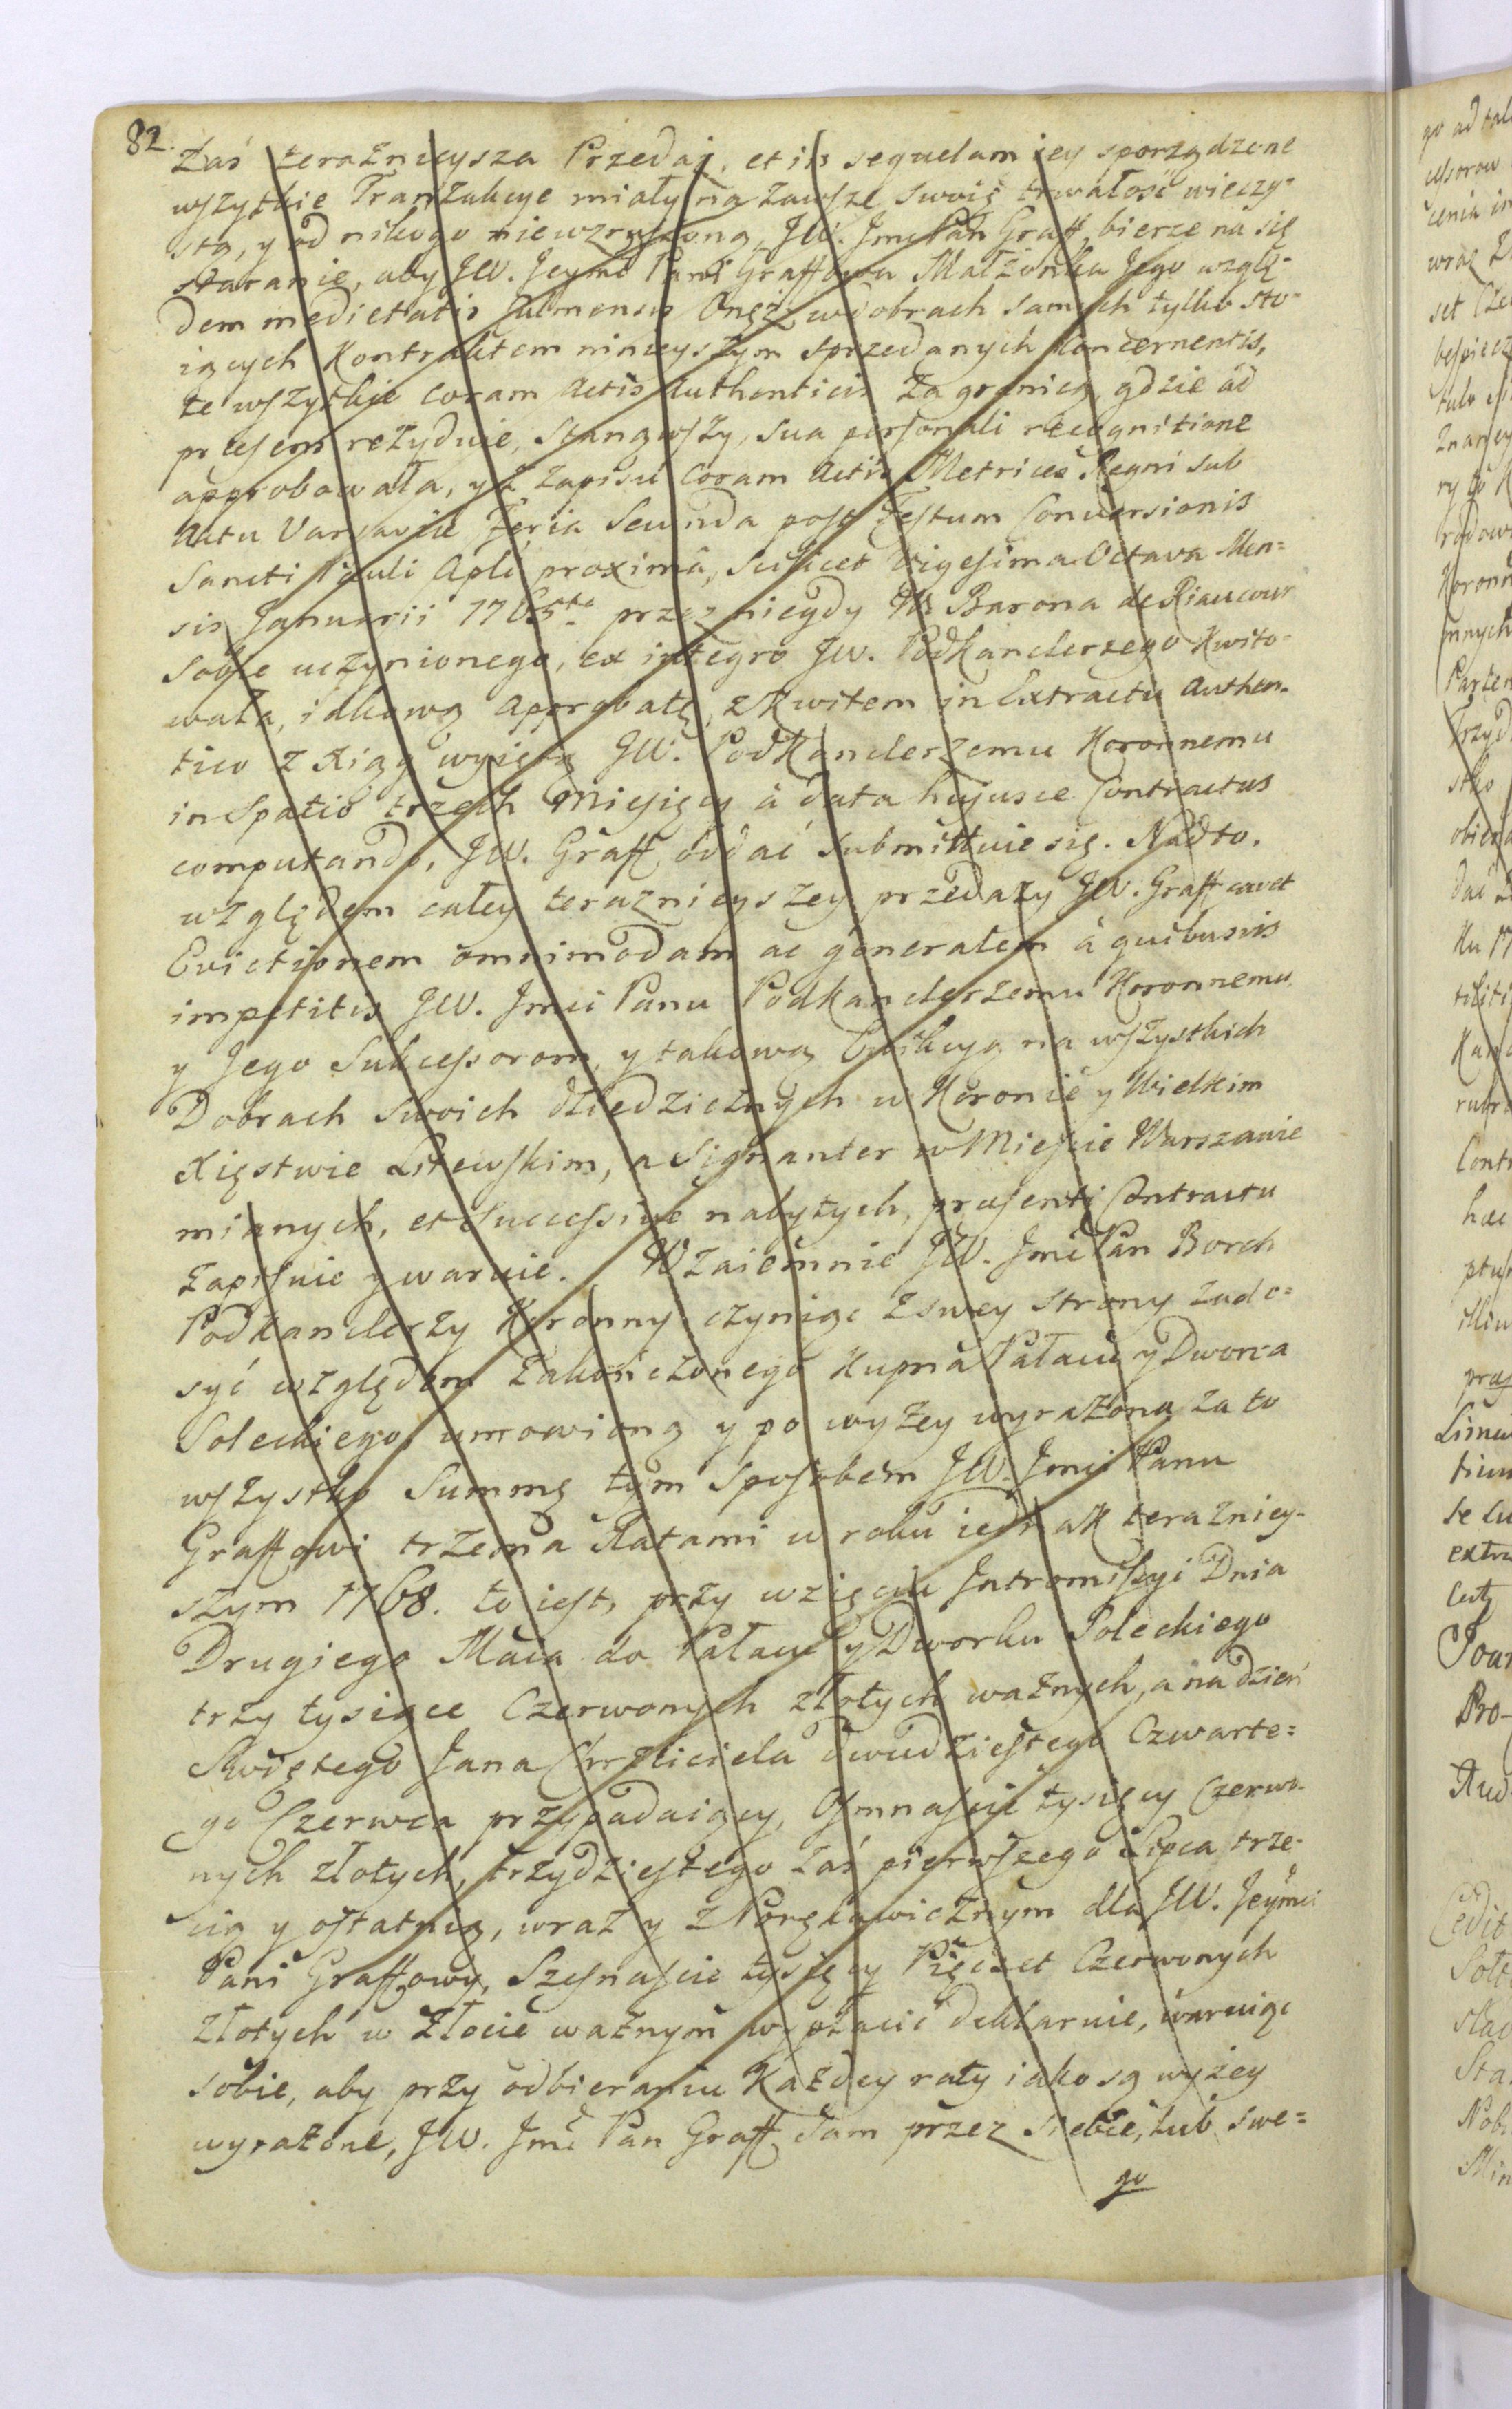 82.
Zaś teraznieysza Przedaż, et in sequelam iey sporządzone
wszytkie Tranzakcye miały na zawsze swoię trwałość wieczy-
stą, y od nikogo niewzruszoną, JW. Jmć Pan Graff, bierze na się
staranie, aby JW. Jeymć Pani Graffowa Małżonka Jego wzglę-
dem medietatis Culmensis Onęż w dobrach samych tylko sto-
iących Kontraktem ninieyszym sprzedanych Concernentis,
te wszytkie coram Actis Authenticis Za granicą, gdzie ad
præsens rezyduie, stanąwszy, sua personali recognitione
approbowała, y z zapisu coram Actis Metrices Regni sub
Actu Varsaviæ Feria Secunda post Festum Conversionis
Sancti Pauli Apli proximâ, scilicet Vigesima Octava Men=
sis Januarii 1765to przez niegdy W Barona de Riaucour
sobie uczynionego, ex integro JW. Podkanclerzego Kwito=
wała, iakową Approbatę, z Kwitem in Extractu Authen-
tico z Xiąg wyiętą JW. Podkanclerzemu Koronnemu
in Spatio trzech Miesięcy â data hujusce Contractus
computando, JW. Graff oddać submittuie się. Nadto.
względem całey teraznieyszey przedazy JW. Graff cavet
Evictionem omnimodam ac generalem â quibusvis
impetitis JW. Jmci Panu Podkanclerzemu Koronnemu
y Jego Sukcessorom, y takową Ewikcyą na wszystkich
Dobrach Swoich dziedzicznych w Koronie y Wielkim
Xięstwie Litewskim, a signanter w Mieście Warszawie
mianych, et successive nabytych, præsenti Contractu
zapisuie y waruie. Wzaiemnie JW. Jmć Pan Borch
Podkanclerzy Koronny czyniąc z swey strony zado=
syć względem Zakończonego Kupna Pałacu y Dworca
Soleckiego, umowioną y po wyżey wyrażoną za to
wszystko Summę tym sposobem JW. Jmci Panu
Graffowi trzema Ratami w roku iednak terazniey-
szym 1768. to iest, przy wzięciu Intromissyi Dnia
Drugiego Maia do Pałacu y Dworku Soleckiego
trzy tysiące Czerwonych złotych ważnych, a na dzień
Swiętego Jana Chrzciciela dwudziestego Czwarte=
go Czerwca przypadaiący, Osmnaście tysięcy Czerwo-
nych złotych, trzydziestego zaś pierwszego Lipca trze-
cią y ostatnią, wraz y z Porękawicznym dla JW. Jeymci
Pani Graffowy, Szesnaście tysięcy Pięćset Czerwonych
złotych w złocie ważnym wypłacić deklaruie, waruiąc
sobie, aby przy odbieraniu Każdey raty iako są wyżey
wyrażone, JW. Jmć Pan Graff sam przez siebie, lub swe=
go